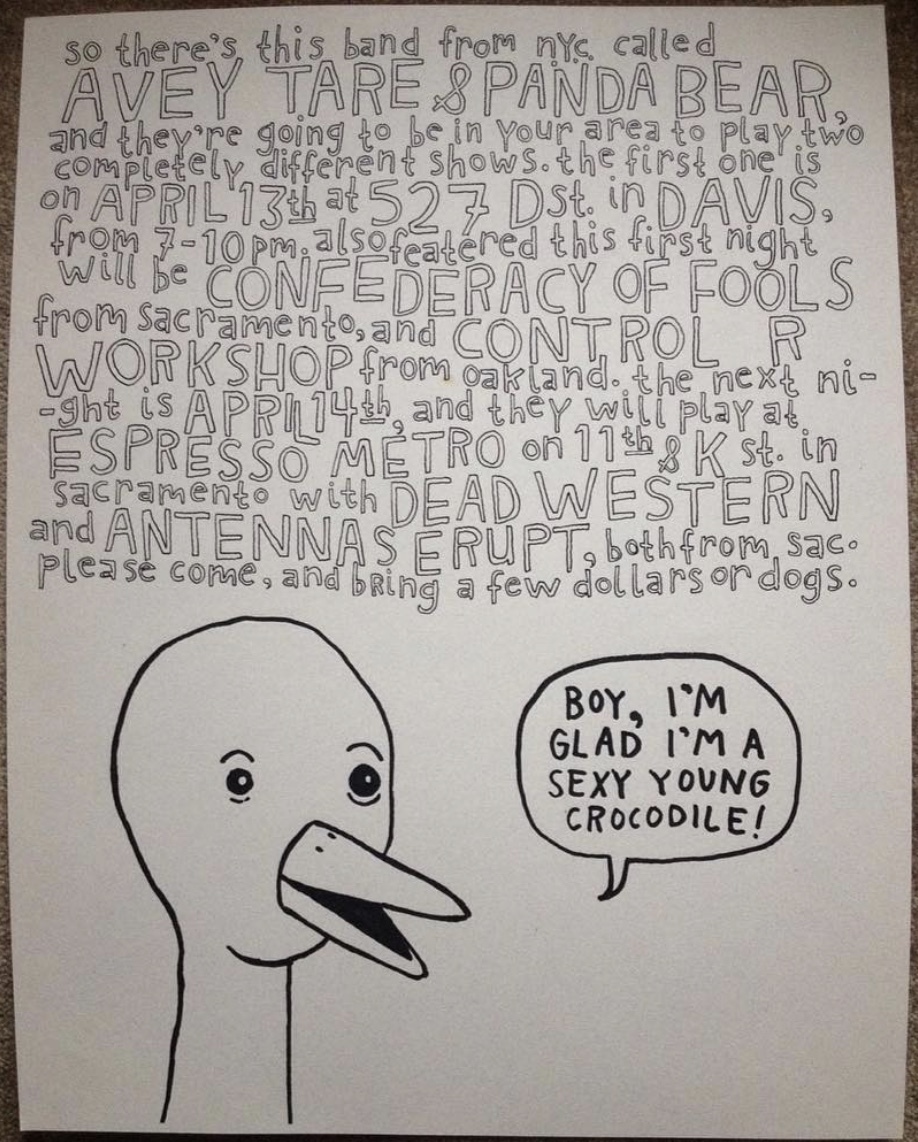 so there's this band from nyc called
AVEY TARE & PANDA BEAR,
and they're going to be in your area to play two
completely different shows. the first one is
on APRIL 13th at 527 D st. in DAVIS,
from 7-10 pm. also featered this first night
will be CONFEDERACY OF FOOLS
from sacramento, and CONTROL R
WORKSHOP from oakland. the next ni-
-ght is APRIL 14th, and they will play at
ESPRESSO METRO on 11th & K st. in
sacramento with DEAD WESTERN
and ANTENNAS ERUPT, both from sac.
please come, and bring a few dollars or dogs.
BOY, I'M
GLAD I'M A
SEXY YOUNG
CROCODILE!